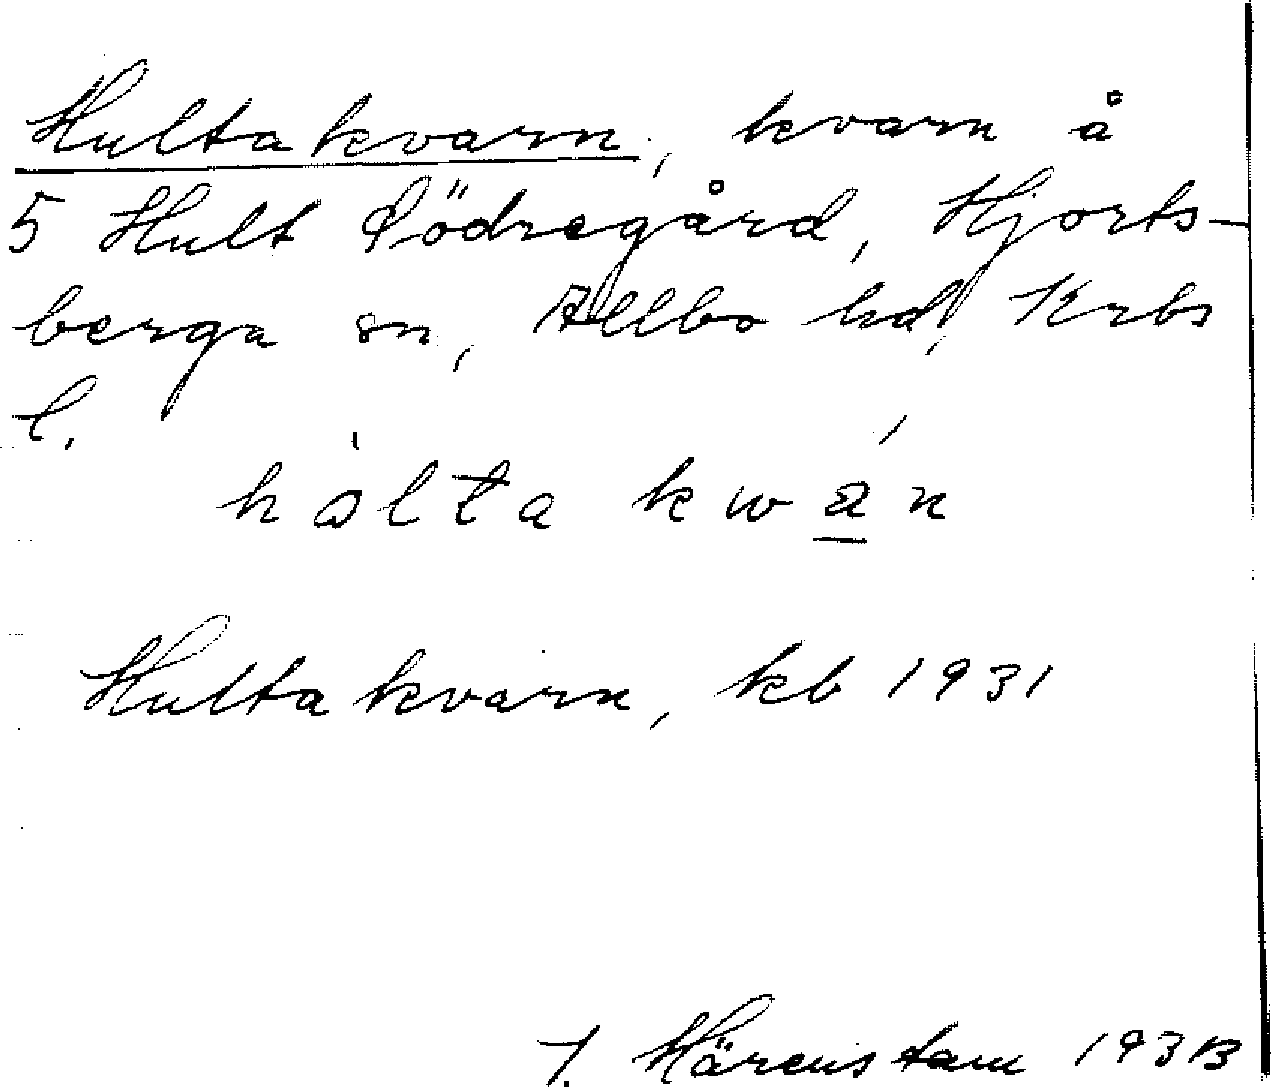 Hultakvarn, kvarn å
5 Hult Södregård, Hjorts-
berga sn, Allbo hd, Krbs
l.
hòlta kwá̲n
Hultakvarn, kb 1931
J. Härenstam 1933